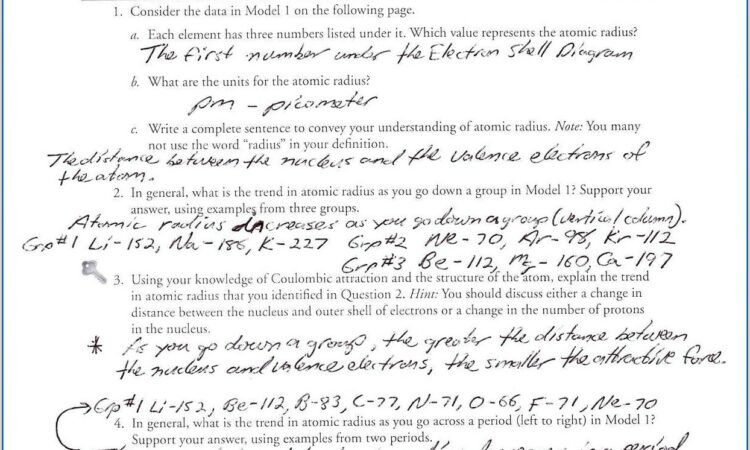 1. Consider the data in Model 1 on the following page.
a. Each element has three numbers listed under it. Which value represents the atomic radius?
The first number under the Electron Shell Diagram
b. What are the units for the atomic radius?
pm - picometer
c. Write a complete sentence to convey your understanding of atomic radius. Note: You many
not use the word "radius" in your definition.
The distance between the nucleus and the valence electrons of
the atom.
2. In general, what is the trend in atomic radius as you go down a group in Model 1? Support your
answer, using examples from three groups.
Atomic radius increases as you go down a group (vertical column).
Grp#1 Li-152, Na-186, K-227 Grp#2 Ne-70, Ar-98, Kr-112
Grp#3 Be-112, Mg-160, Ca-197
3. Using your knowledge of Coulombic attraction and the structure of the atom, explain the trend
in atomic radius that you identified in Question 2. Hint: You should discuss either a change in
distance between the nucleus and outer shell of electrons or a change in the number of protons
in the nucleus.
* As you go down a group, the greater the distance between
the nucleus and valence electrons, the smaller the attractive force.
Grp#1 Li-152, Be-112, B-83, C-77, N-71, O-66, F-71, Ne-70
4. In general, what is the trend in atomic radius as you go across a period (left to right) in Model 1?
Support your answer, using examples from two periods.